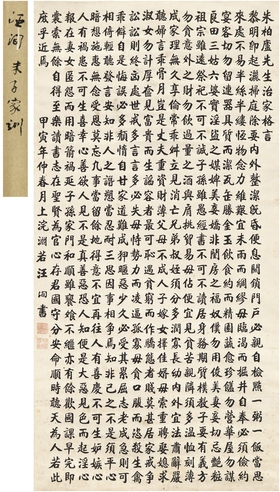 汪洵 朱子家訓
朱柏廬先生治家格言
黎明即起灑掃庭除要內外整潔既昏便息關鎖門戶必親自檢點一粥一飯當思
來處不易半絲半縷恆念物力維艱宜未雨而綢繆毋臨渴而掘井自奉必須儉約
宴客切勿留連器具質而潔瓦缶勝金玉飲食約而精園蔬愈珍饈勿營華屋勿謀
良田三姑六婆實淫盜之媒婢美妾嬌非閨房之福奴僕勿用俊美妻妾切忌艷粧
祖宗雖遠祭祀不可不誠子孫雖愚經書不可不讀居身務期質樸教子要有義方
勿貪意外之財勿飲過量之酒與肩挑貿易毋佔便宜見貧苦親鄰須多溫恤刻薄
成家理無久享倫常乖舛立見消亡兄弟叔姪須分多潤寡長幼內外宜法肅辭嚴
聽婦言乖骨肉豈是丈夫重貲財薄父母不成人子嫁女擇佳婿毋索重聘娶媳求
淑女勿計厚奩見富貴而生諂容者最可恥遇貧窮而作驕態者賤莫甚居家戒爭
訟訟則終凶處世戒多言言多必失毋恃勢力而凌逼孤寡毋貪口腹而恣殺生禽
乖僻自是悔誤必多頹惰自甘家道難成狎暱惡少久必受其累屈志老成急則可
相依輕聽發言安知非人之譖愬當忍耐三思因事相爭焉知非我之不是須平心
暗想施惠無念受恩莫忘凡事當留餘地得意不宜再往人有喜慶不可生妒嫉心
人有禍患不可生喜幸心善欲人見不是真善惡恐人知便是大惡見色而起淫心
報在妻女匿怨而用暗箭禍延子孫家門和順雖饔飧不繼亦有餘歡國課早完即
囊橐無餘自得至樂讀書志在聖賢為官心存君國守分安命順時聽天為人若此
庶乎近焉
甲寅年仲春月上浣淵若汪洵書